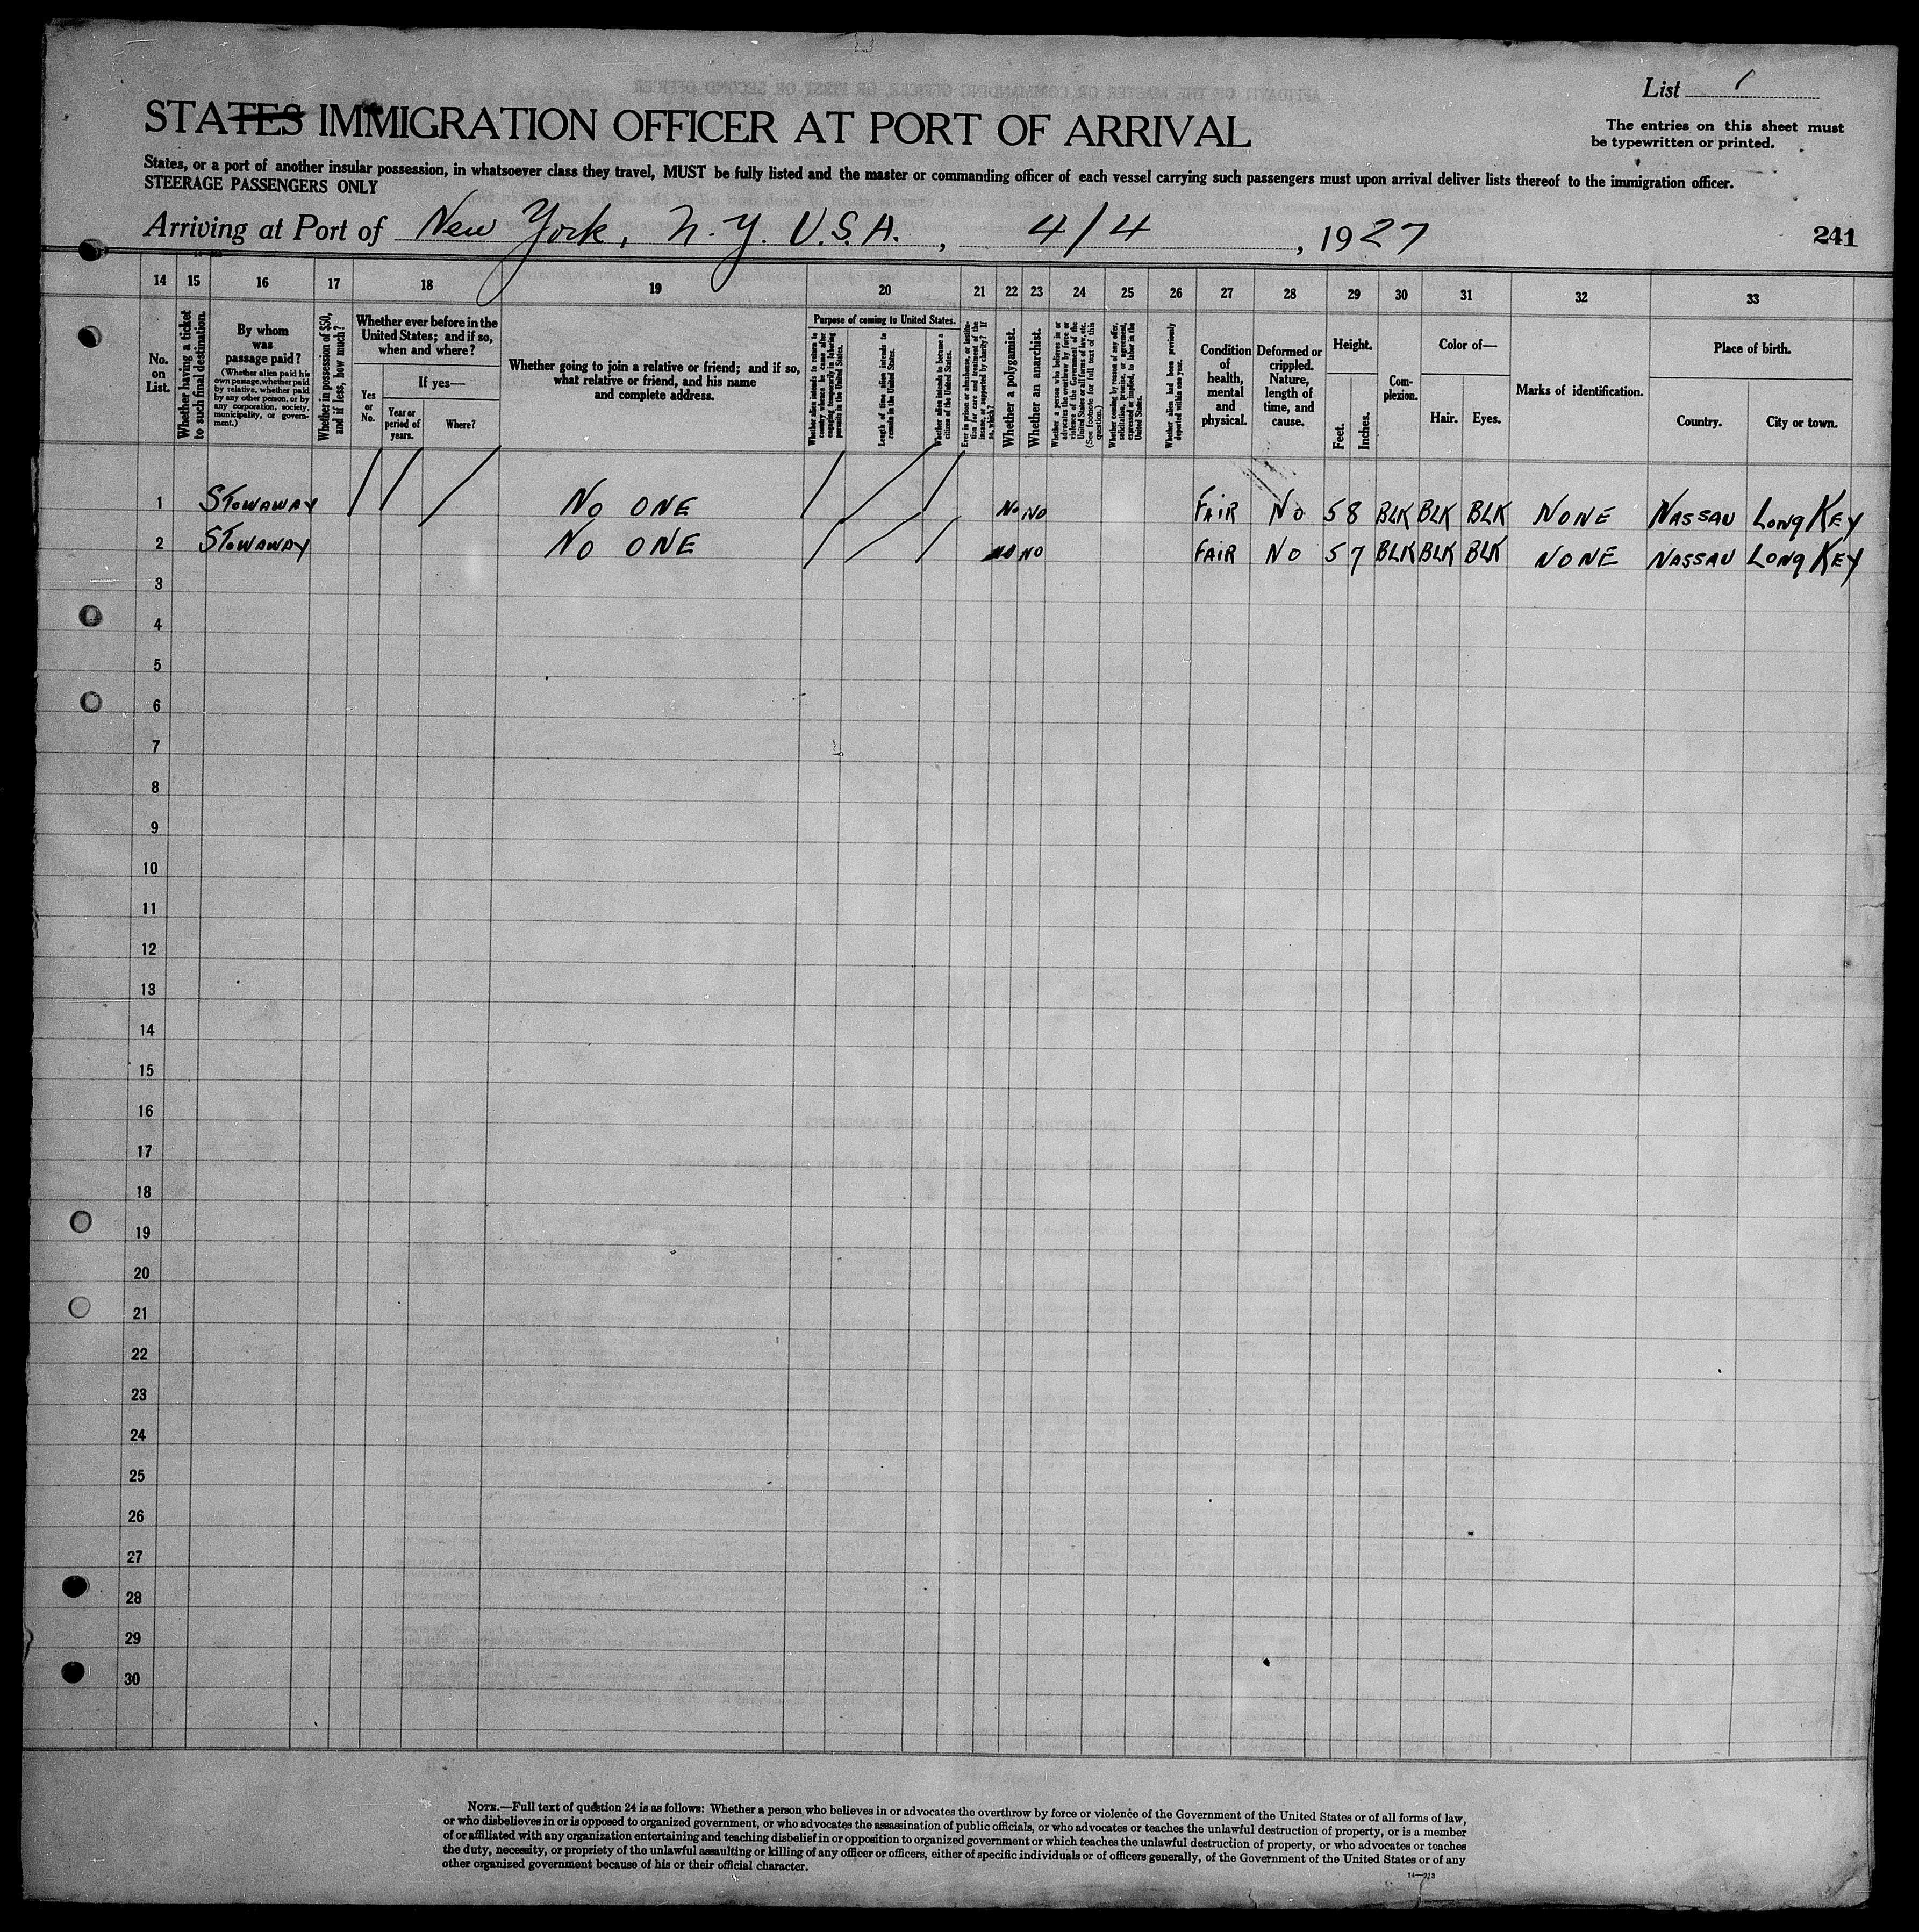 List 1
STATES IMMIGRATION OFFICER AT PORT OF ARRIVAL
The entries on this sheet must
be typewritten or printed.
States, or a port of another insular possession, in whatsoever class they travel, MUST be fully listed and the master or commanding officer of each vessel carrying such passengers must upon arrival deliver lists thereof to the immigration officer.
STEERAGE PASSENGERS ONLY
Arriving at Port of New York, N.Y. U.S.A., 4/4, 1927
241
14 15 16 17 18 19 20 21 22 23 24 25 26 27 28 29 30 31 32 33
No.
on
List.
Whether having a ticket
to such final destination.
By whom
was
passage paid?
(Whether alien paid his
own passage, whether paid
by relative, whether paid
by any other person, or by
any corporation, society,
municipality, or govern-
ment.)
Whether in possession of $50,
and if less, how much?
Whether ever before in the
United States; and if so,
when and where?
Yes
or
No.
If yes—
Year or
period of
years.
Where?
Whether going to join a relative or friend; and if so,
what relative or friend, and his name
and complete address.
Purpose of coming to United States.
Whether alien intends to return to
country whence he came after
engaging temporarily in laboring
pursuits in the United States.
Length of time alien intends to
remain in the United States.
Whether alien intends to become a
citizen of the United States.
Ever in prison or almshouse, or institu-
tion for care and treatment of the
insane, or supported by charity? If
so, which?
Whether a polygamist.
Whether an anarchist.
Whether a person who believes in or
advocates the overthrow by force or
violence of the Government of the
United States or all forms of law, etc.
(See footnote for full text of this
question.)
Whether coming by reason of any offer,
solicitation, promise, or agreement,
expressed or implied, to labor in the
United States.
Whether alien had been previously
deported within one year.
Condition
of
health,
mental
and
physical.
Deformed or
crippled.
Nature,
length of
time, and
cause.
Height.
Feet.
Inches.
Com-
plexion.
Color of—
Hair.
Eyes.
Marks of identification.
Place of birth.
Country.
City or town.
1 STOWAWAY NO ONE NO NO FAIR NO 5 8 BLK BLK BLK NONE NASSAU LONG KEY
2 STOWAWAY NO ONE NO NO FAIR NO 5 7 BLK BLK BLK NONE NASSAU LONG KEY
3
4
5
6
7
8
9
10
11
12
13
14
15
16
17
18
19
20
21
22
23
24
25
26
27
28
29
30
NOTE.—Full text of question 24 is as follows: Whether a person who believes in or advocates the overthrow by force or violence of the Government of the United States or of all forms of law,
or who disbelieves in or is opposed to organized government, or who advocates the assassination of public officials, or who advocates or teaches the unlawful destruction of property, or is a member
of or affiliated with any organization entertaining and teaching disbelief in or opposition to organized government or which teaches the unlawful destruction of property, or who advocates or teaches
the duty, necessity, or propriety of the unlawful assaulting or killing of any officer or officers, either of specific individuals or of officers generally, of the Government of the United States or of any
other organized government because of his or their official character.